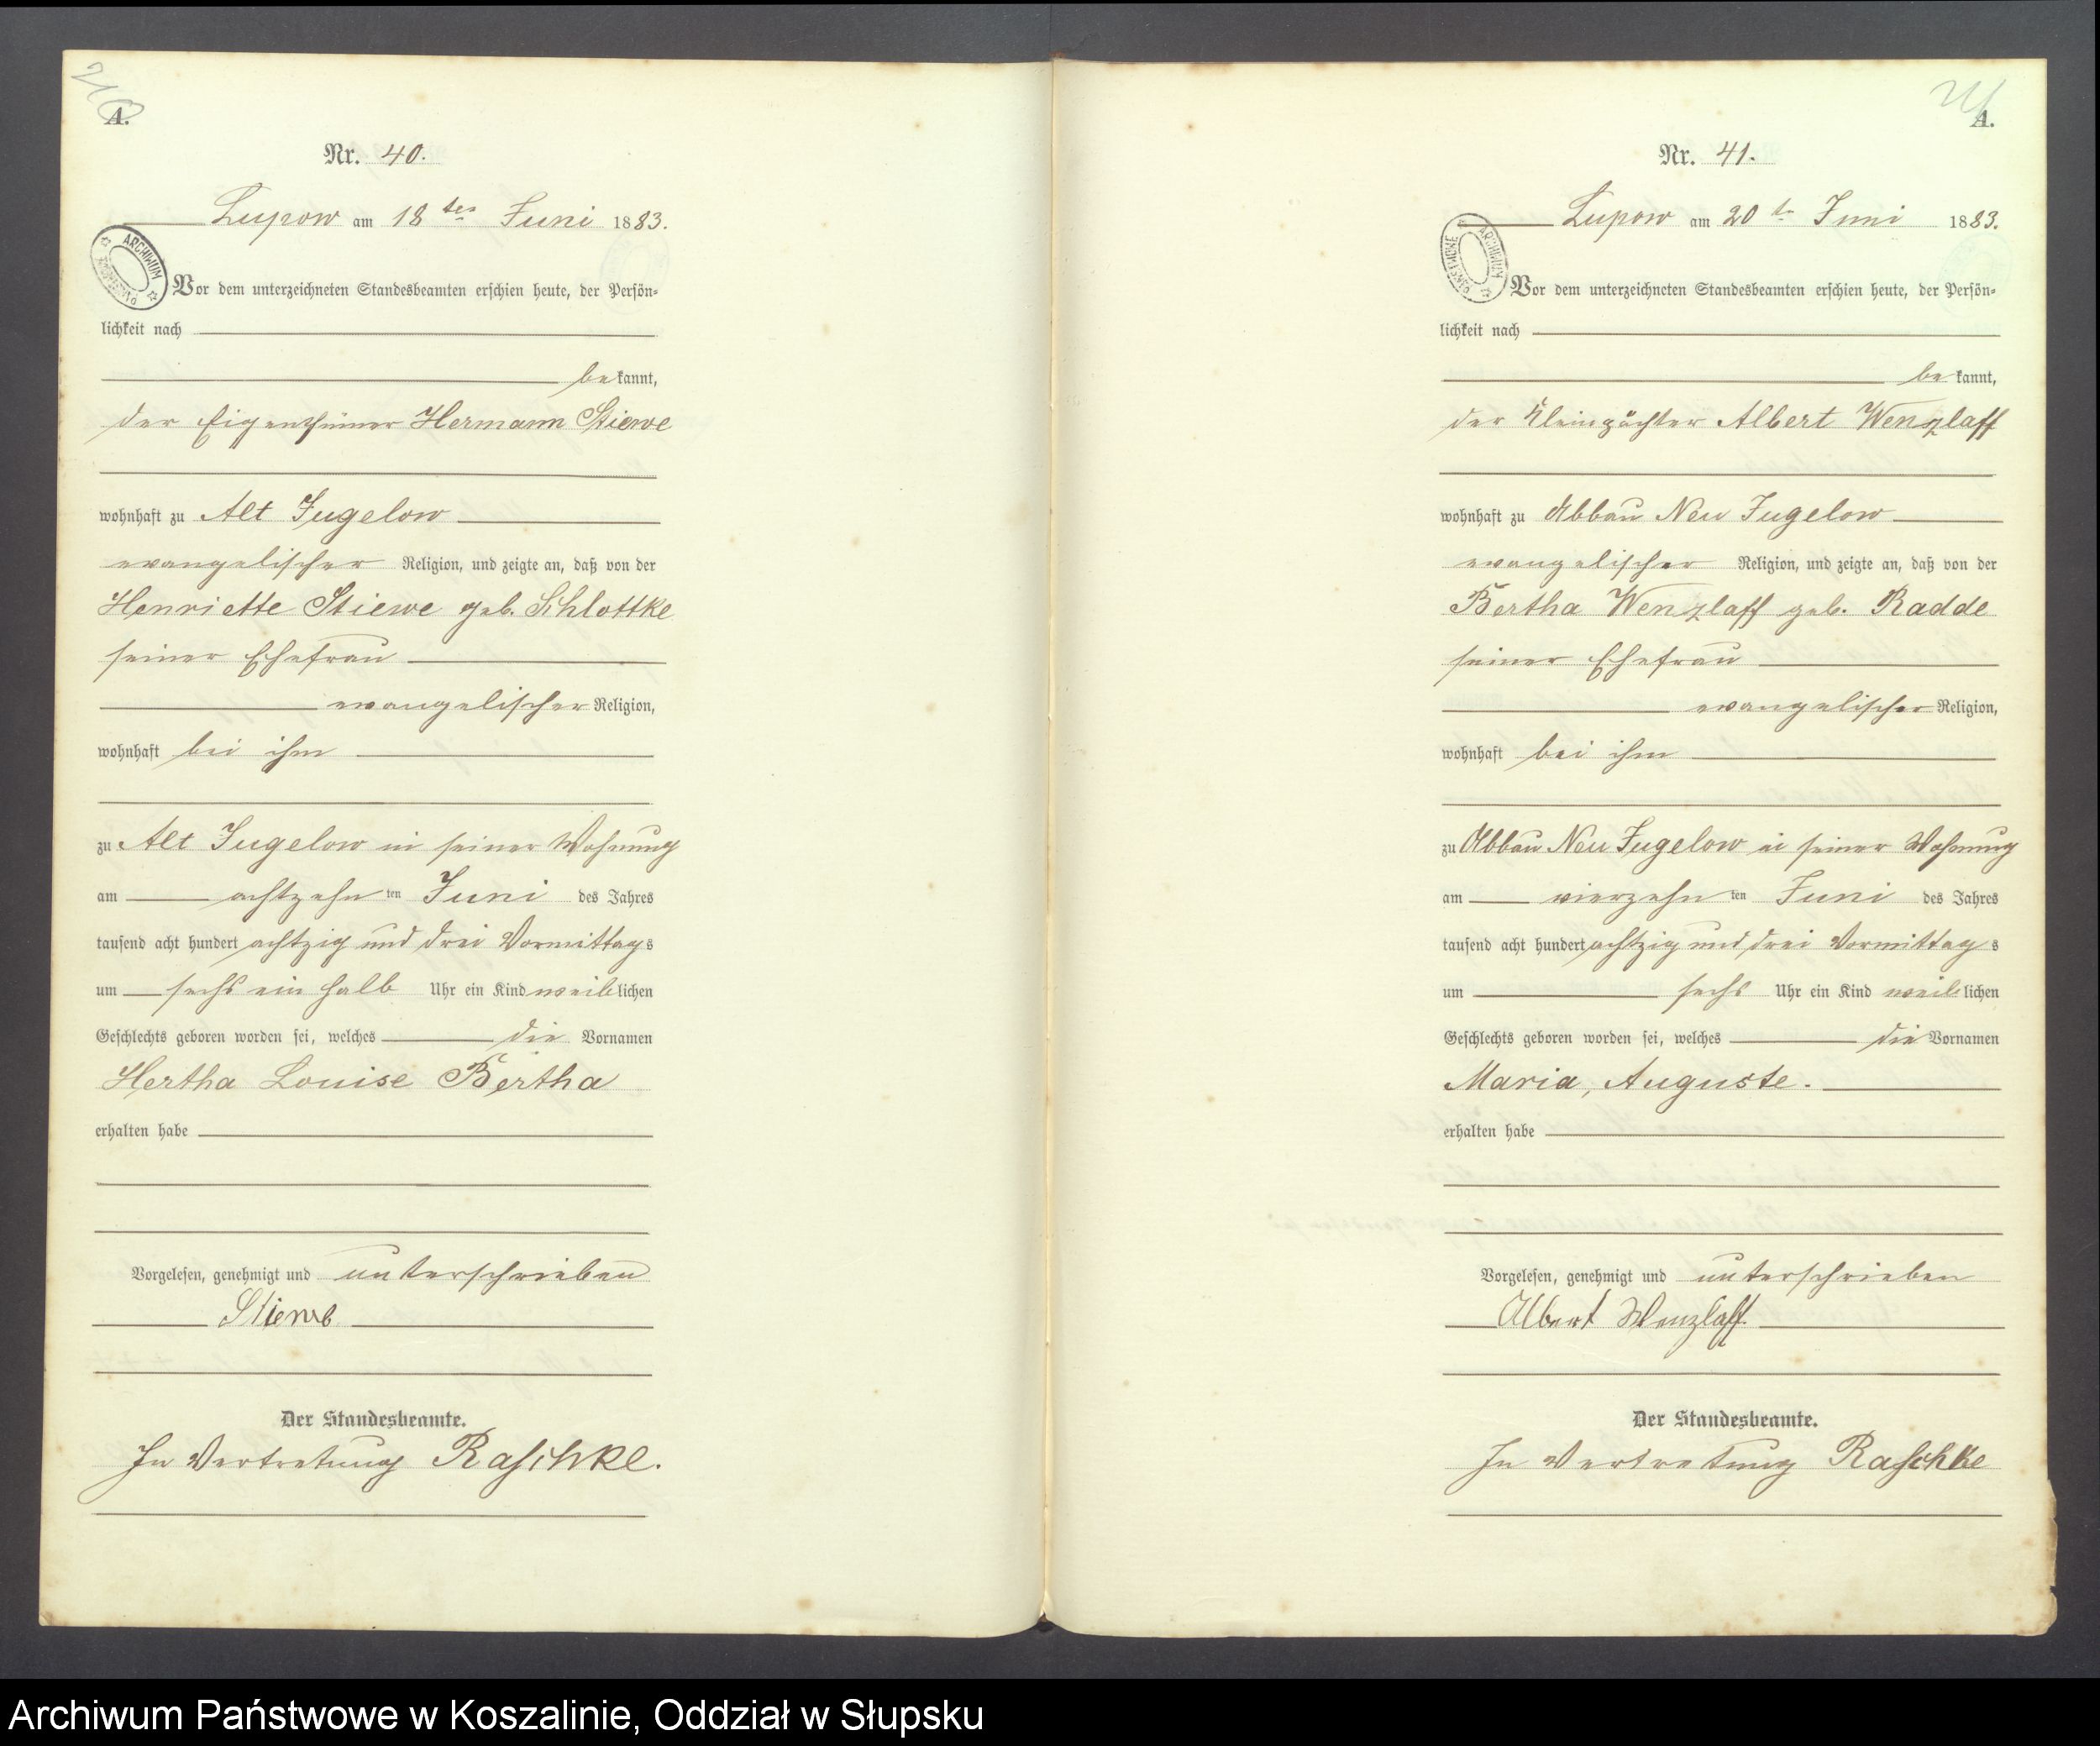 A.
Nr. 40.
Lupow am 18ten Juni 1883.
ARCHIWUM
Vor dem unterzeichneten Standesbeamten erschien heute, der Persön-
lichkeit nach
bekannt,
der Eigenthümer Hermann Stiewe
wohnhaft zu Alt Jugelow
evangelischer Religion, und zeigte an, daß von der
Henriette Stiewe geb. Schlottke
seiner Ehefrau
evangelischer Religion,
wohnhaft bei ihm
zu Alt Jugelow in seiner Wohnung
am achtzehnten Juni des Jahres
tausend acht hundert achtzig und drei Vormittags
um sechs ein halb Uhr ein Kind weiblichen
Geschlechts geboren worden sei, welches die Vornamen
Hertha Louise Bertha
erhalten habe
Vorgelesen, genehmigt und unterschrieben
Stiewe
Der Standesbeamte.
In Vertretung Raschke.
A.
Nr. 41.
Lupow am 20t Juni 1883.
ARCHIWUM
Vor dem unterzeichneten Standesbeamten erschien heute, der Persön-
lichkeit nach
bekannt,
der Kleinpächter Albert Wenzlaff
wohnhaft zu Abbau Neu Jugelow
evangelischer Religion, und zeigte an, daß von der
Bertha Wenzlaff geb. Radde
seiner Ehefrau
evangelischer Religion,
wohnhaft bei ihm
zu Abbau Neu Jugelow in seiner Wohnung
am vierzehnten Juni des Jahres
tausend acht hundert achtzig und drei Vormittags
um sechs Uhr ein Kind weiblichen
Geschlechts geboren worden sei, welches die Vornamen
Maria, Auguste.
erhalten habe
Vorgelesen, genehmigt und unterschrieben
Albert Wenzlaff.
Der Standesbeamte.
In Vertretung Raschke
Archiwum Państwowe w Koszalinie, Oddział w Słupsku